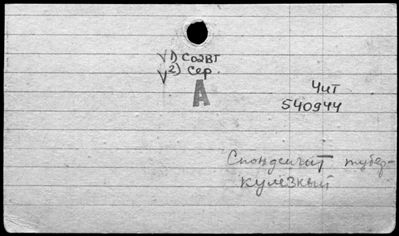 √ 1) СоавТ
√ 2) Сер.
А
Чит
540944
Спондилит тубер-
кулёзный